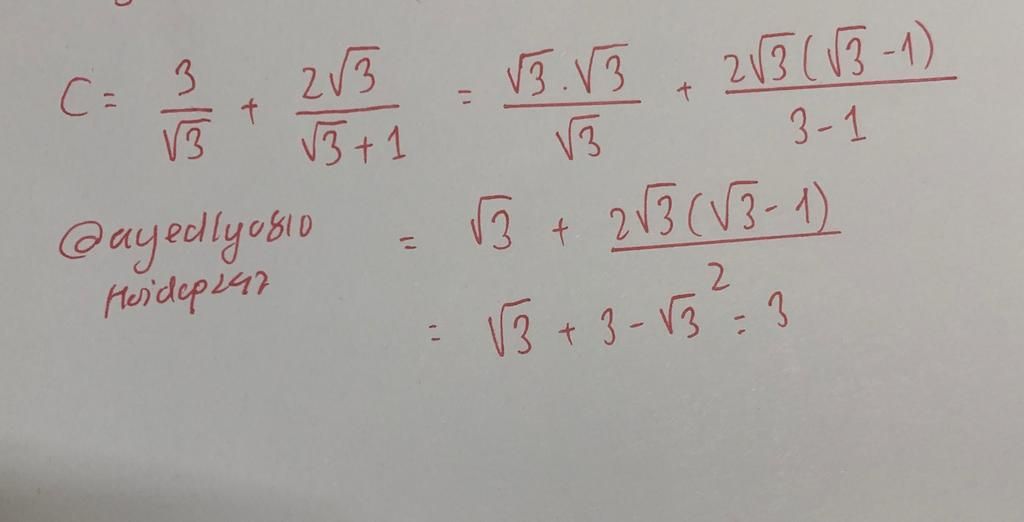 C = 3/√3 + 2√3/(√3 + 1) = √3 . √3/√3 + 2√3(√3 - 1)/(3 - 1)
@ayedlyc810
Hoidap247
= √3 + 2√3(√3 - 1)/2
= √3 + 3 - √3 = 3